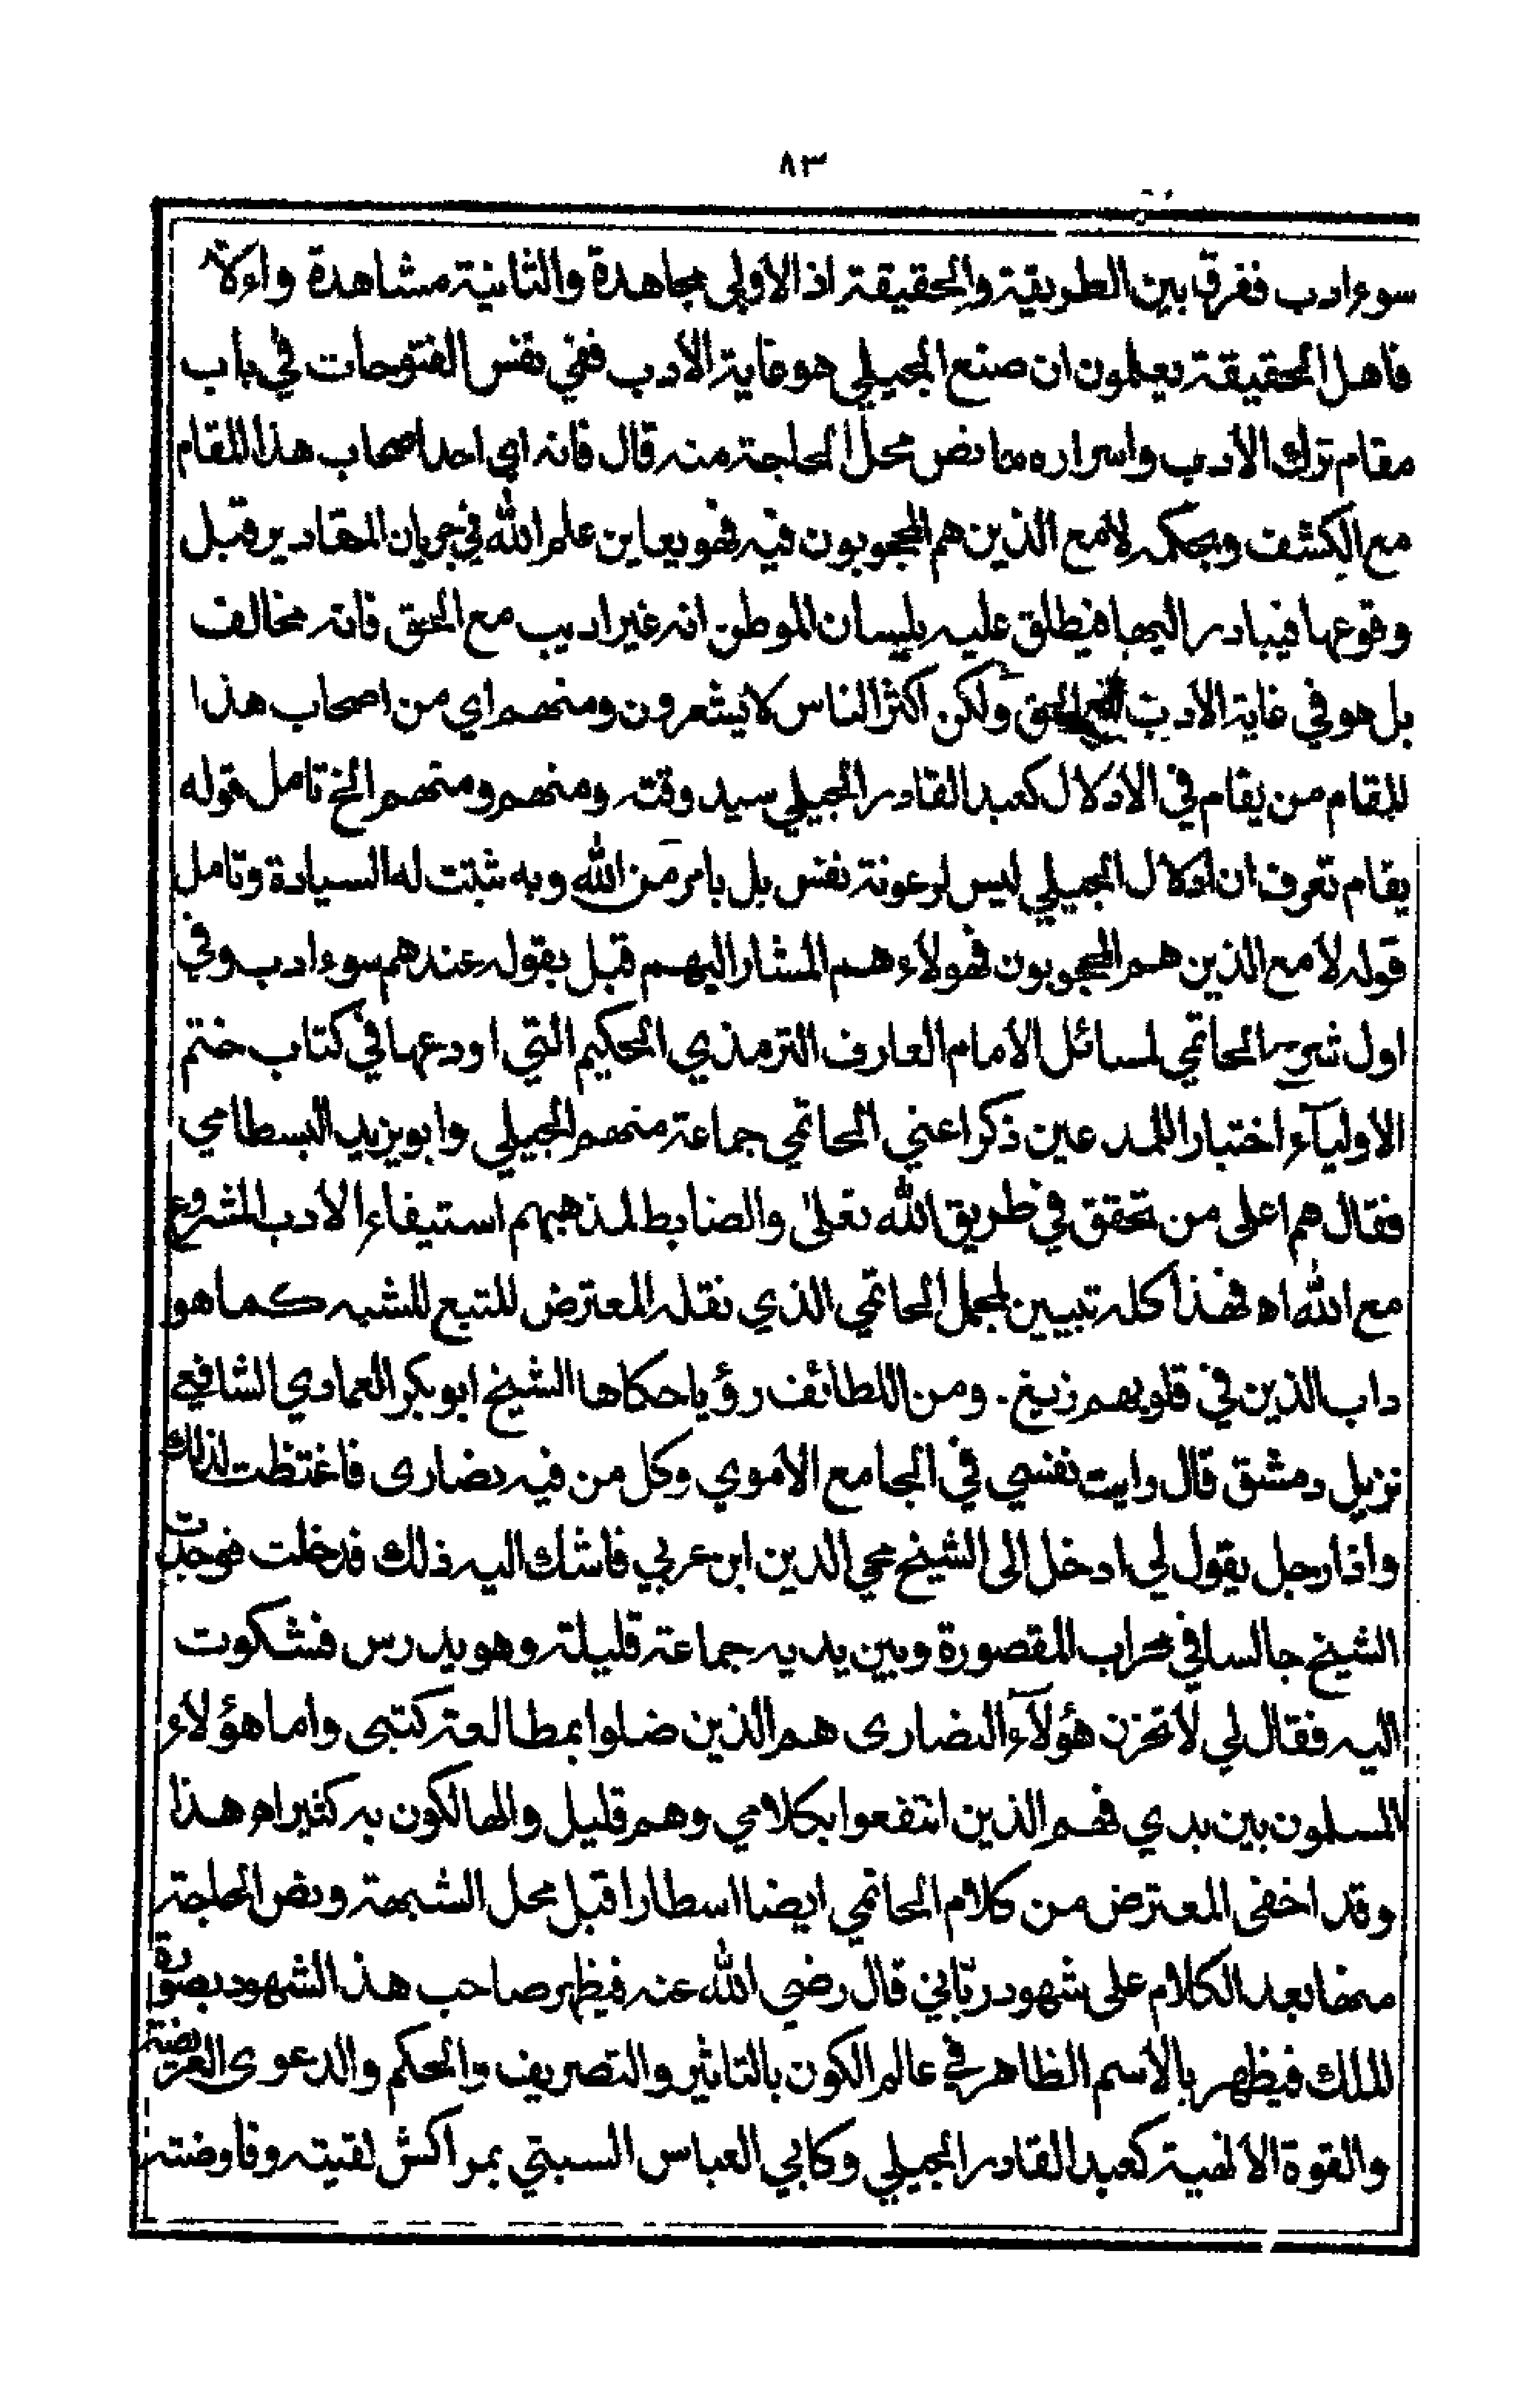 ٨٣
سوء ادب ففرق بين الطريقة والحقيقة اذ الاولى مجاهدة والثانية مشاهدة
فاهل الحقيقة يعلمون ان صنع الجيلي هو غاية الادب ففي نفس الفتوحات في باب
مقام ترك الادب واسراره ما نص محل الحاجة منه قال فانه اي احد اصحاب هذا المقام
مع الكشف وبحكمه لا مع الذين هم المحجوبون فيه فهو يعاين علم الله في جريان المقادير قبل
وقوعها فيبادر اليها فيطلق عليه بلسان الموطن انه غير اديب مع الحق فانه مخالف
بل هو في غاية الادب مع الحق ولكن اكثر الناس لا يشعرون ومنهم اي من اصحاب هذا
المقام من يقام في الادلال كعبد القادر الجيلي سيد وقته ومنهم ومنهم الخ تامل قوله
يقام تعرف ان ادلال الجيلي ليس لرعونة نفس بل بامر من الله وبه ثبتت له السيادة وتامل
قوله لا مع الذين هم المحجوبون فهولاء هم المشار اليهم قبل بقوله عندهم سوء ادب وفي
اول شرح الحاتمي لمسائل الامام العارف الترمذي الحكيم التي اودعها في كتاب ختم
الاوليآء اختبارا للمدعين ذكر اعني الحاتمي جماعة منهم الجيلي وابو يزيد البسطامي
فقال هم اعلى من تحقق في طريق الله تعالى والضابط لمذهبهم استيفاء الادب المشروع
مع الله اه فهذا كله تبيين لمجمل الحاتمي الذي نقله المعترض المتتبع للشبه كما هو
داب الذين في قلوبهم زيغ . ومن اللطائف رؤيا حكاها الشيخ ابو بكر العمادي الشافعي
نزيل دمشق قال رايت نفسي في الجامع الاموي وكل من فيه نصارى فاغتظت لذلك
واذا رجل يقول لي ادخل الى الشيخ محي الدين ابن عربي فاشك اليه ذلك فدخلت فوجدت
الشيخ جالسا في محراب المقصورة وبين يديه جماعة قليلة وهو يدرس فشكوت
اليه فقال لي لا تحزن هؤلآء النصارى هم الذين ضلوا بمطالعة كتبي واما هؤلاء
المسلمون بين يدي فهم الذين انتفعوا بكلامي وهم قليل والهالكون به كثير اه هذا
وقد اخفى المعترض من كلام الحاتمي ايضا اسطارا قبل محل الشبهة ونص الحاجة
منها بعد الكلام على شهود رباني قال رضي الله عنه فيظهر صاحب هذا الشهود بصورة
الملك فيظهر بالاسم الظاهر في عالم الكون بالتاثير والتصريف والحكم والدعوى العريضة
والقوة الالهية كعبد القادر الجيلي وكابي العباس السبتي بمراكش لقيته وفاوضته